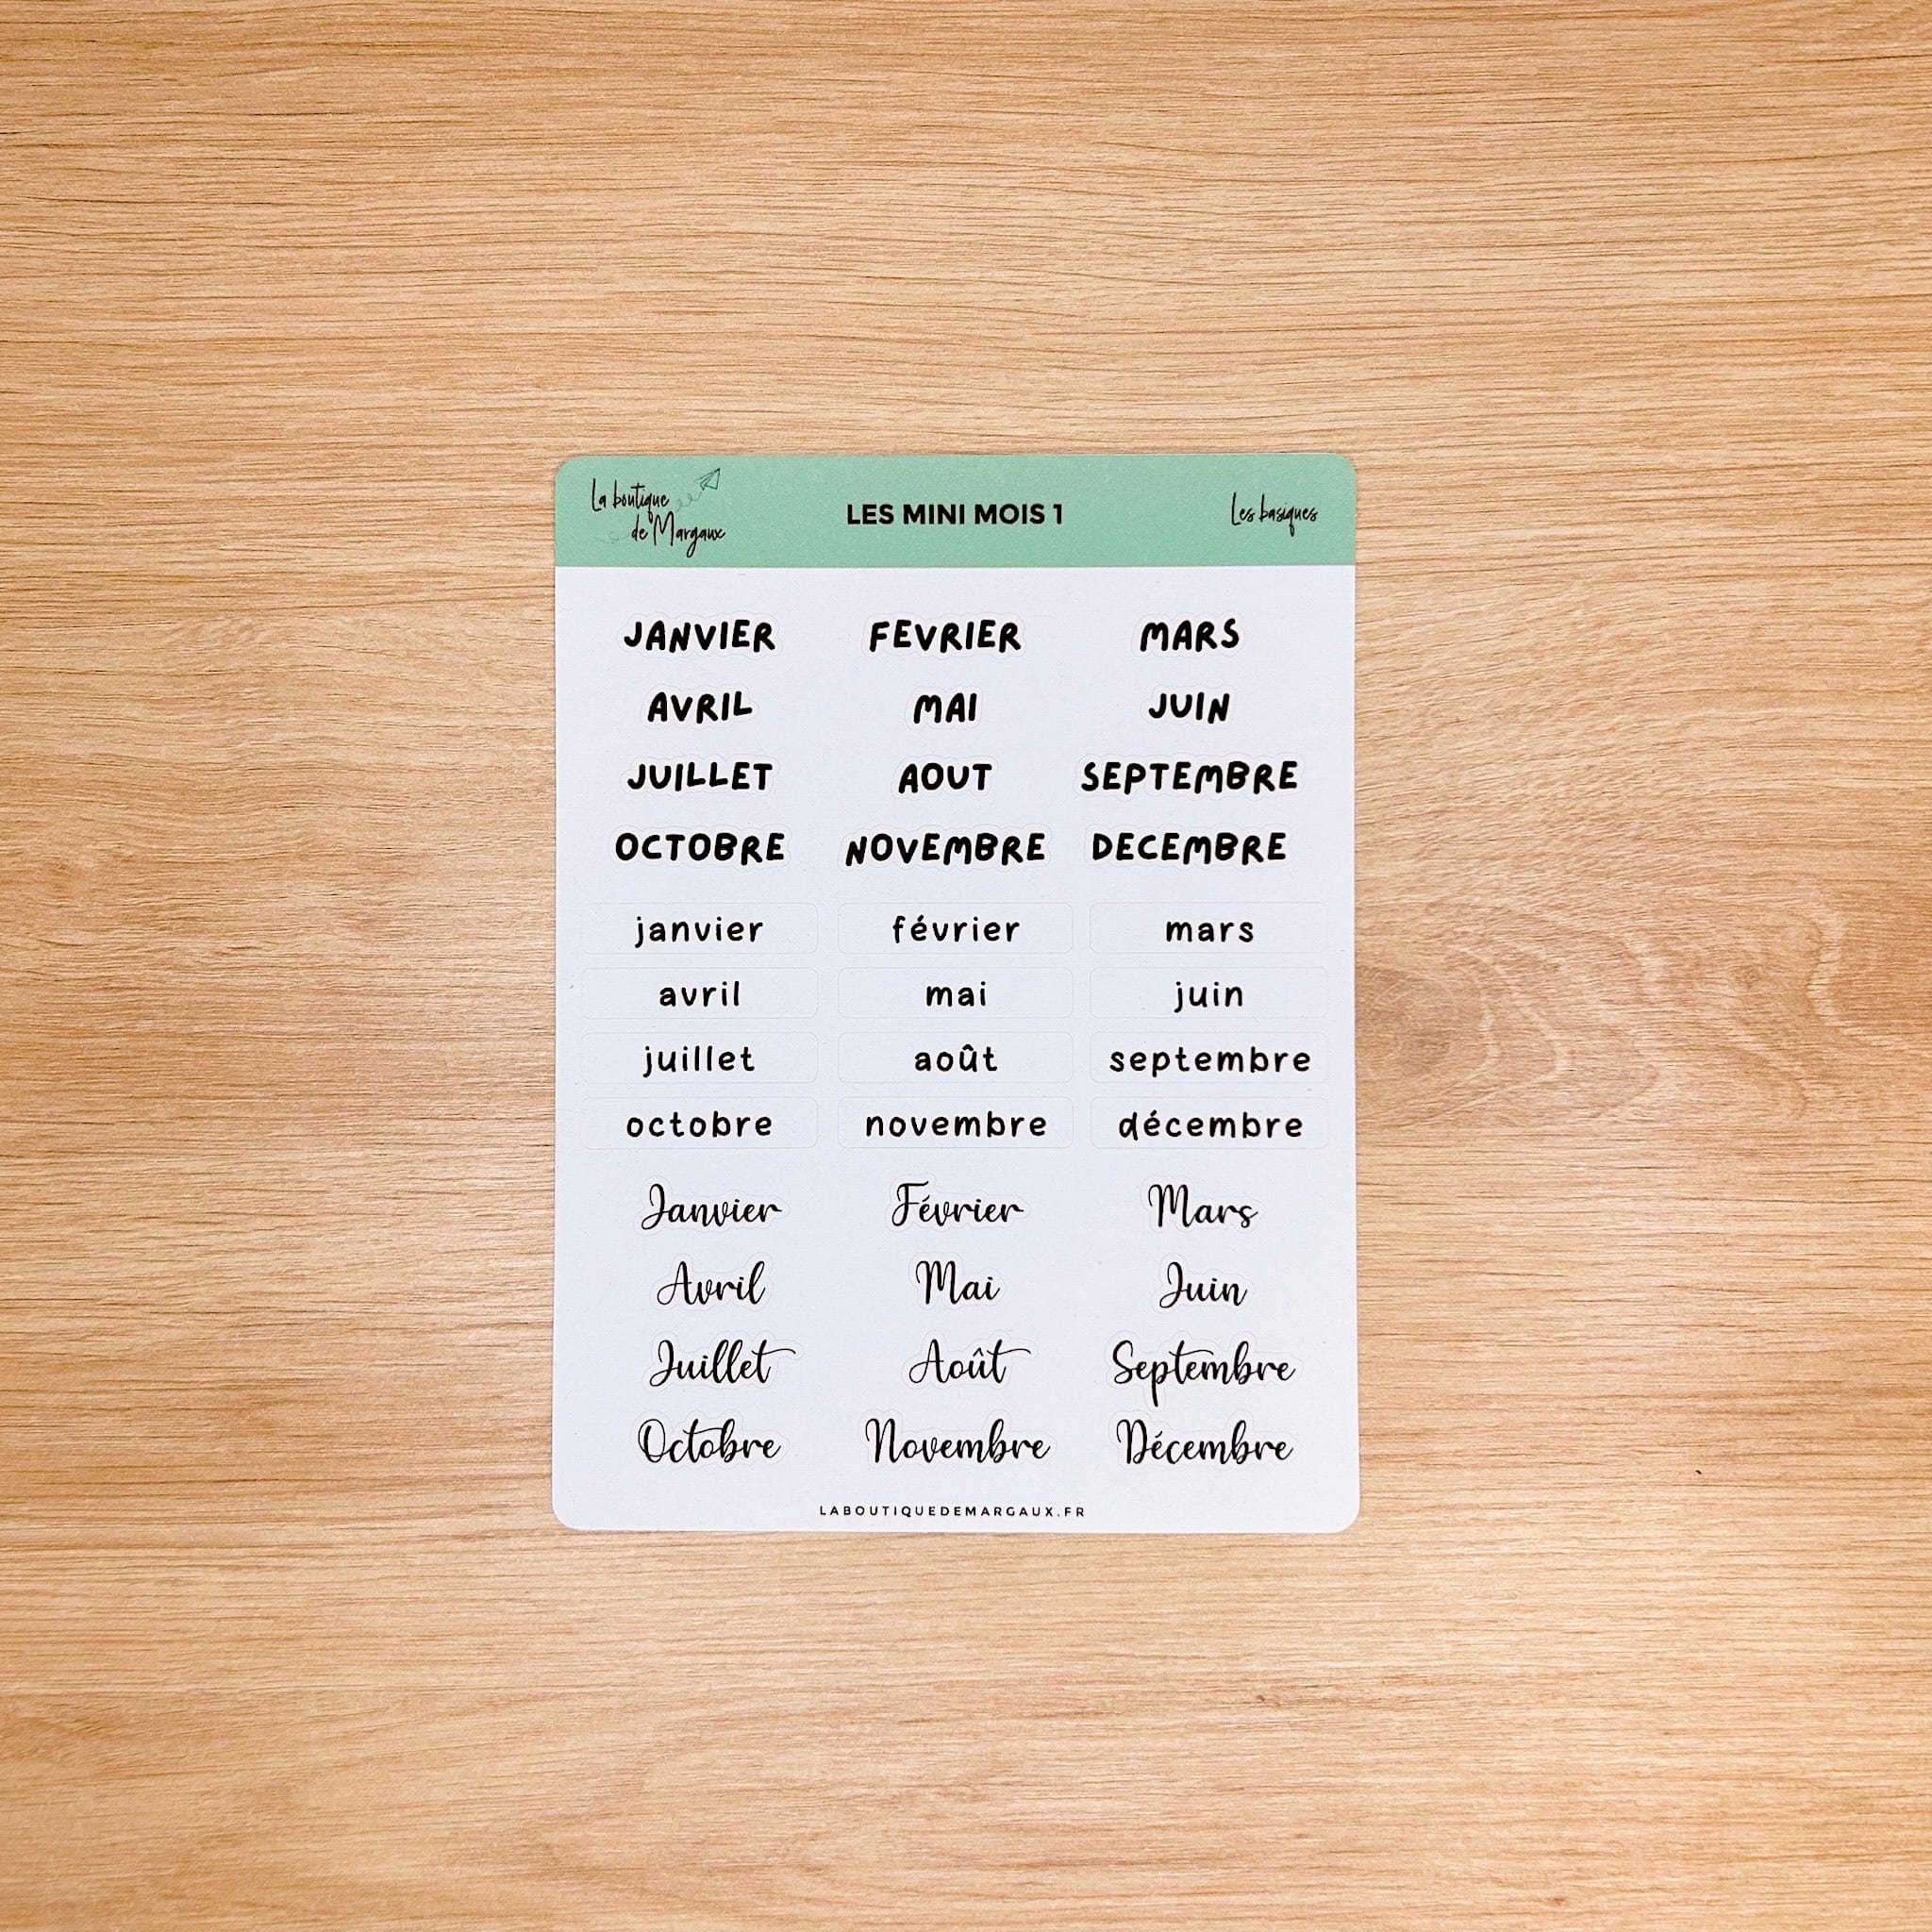 La boutique
de Margaux
LES MINI MOIS 1
Les basiques
JANVIER FEVRIER MARS
AVRIL MAI JUIN
JUILLET AOUT SEPTEMBRE
OCTOBRE NOVEMBRE DECEMBRE
janvier février mars
avril mai juin
juillet août septembre
octobre novembre décembre
Janvier Février Mars
Avril Mai Juin
Juillet Août Septembre
Octobre Novembre Décembre
LABOUTIQUEDEMARGAUX.FR